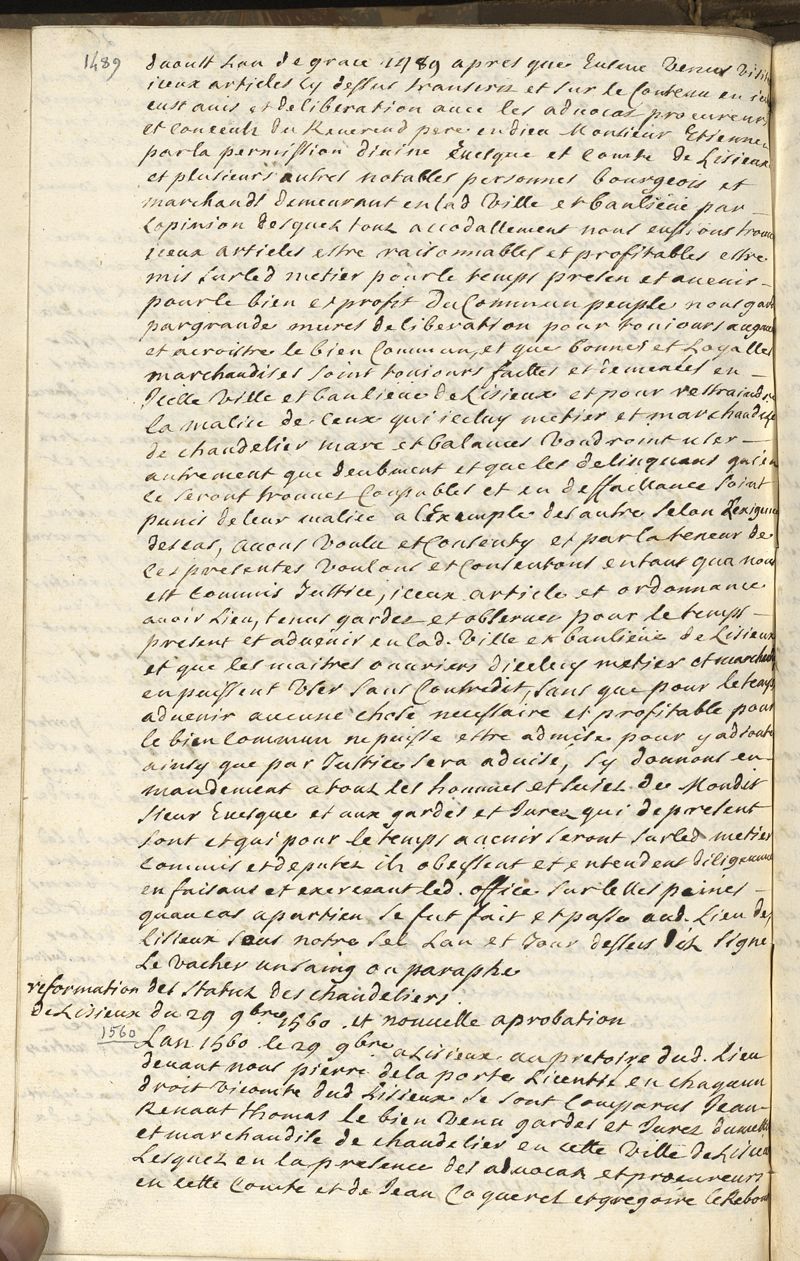 1489
daoust Lan de grace 1489 apres que Eusme Venus visit
iceux articles cy dessus transcriz et sur le Contenu en ice
eust auis et deliberation auec les aduocaz procureurs
et conceulz du Reuerend pere en dieu Monsieur Etienne
par la permission diuine Euesque et Comte de Lisieux
et plusieurs autres notables personnes bourgeois et
marchands demeurant en lad Ville et banlieüe par —
Lopinion desquez touz accodallement nous eussions trouu
iceux articles estre raisonnables et profitables estre
mis surled metier pour le temps presen et auenir —
pour le bien et profit du Commun peuple nous gard
par grande mures deliberation pour toujours augm
et acroistre le bien Commun, et que bonnes et Loyalles
marchandises soint toujours failles et en
Icelle Ville et banlieue de Lisieux et pour restraindre
la malice de Ceux qui icelluy metier et marchandise
de chandelier marc et balances Voudroint user —
autrement que deubment et que les delinquans qui en
ce seront trouues Coupables et en deffaillance soint
punis de leur malice a l'Exemple des autre selon Lexigence
des cas, auons Voulu et Consenty et par la teneur de
Ces presentes Voulons et Consentons entant qua nous
est Commis Justice, iceux article et ordonnance
auoir Lieu, tenus gardez et obseruez pour le temps —
present et aduenir en lad. Ville et banlieüe de Lisieux
et que les maitres ouuriers dicelluy metier et marchand
en puissent Vser sans Contredit, sans que pour le temps
aduenir aucune chose necessaire et profitable pour
le bien Commun ne puisse estre admise pour y adiouter
ainsy que par Justice sera aduise, sy donnons en —
mandement a touz les hommes et sujez de Mondit
sieur Euesque et aux gardes et Jurez qui de present
sont et qui pour le temps auenir seront surled metier
Commis et deputez ilz obeissent et entendent diligemment
en faisant et exercant led. office sur telles peines —
quau cas apartien Se fut fait et passe aud. Lieu de
Lisieux sous notre sel Lan et Jour dessus dit Signe
Le Vacher un saing ou paraphe
reformation des statuz des chandeliers
de Lisieux du 29 9bre 1560 et nouuelle aprobation
1560
Lan 1560 le 29 9bre a Lisieux au pretoire dud. Lieu
deuant nous pierre de la porte Licentié en chaqun
droit Vicomte dud Lisieux se sont Comparus Jean
Renaut thomas le bien Venu gardes et Jurez du
et marchandise de chandelier en cette Ville de Lisieux
Lesquez en la presence des aduocaz et procureurs
en cette Comte et de Jean Coquerel et gregoire le Rebou